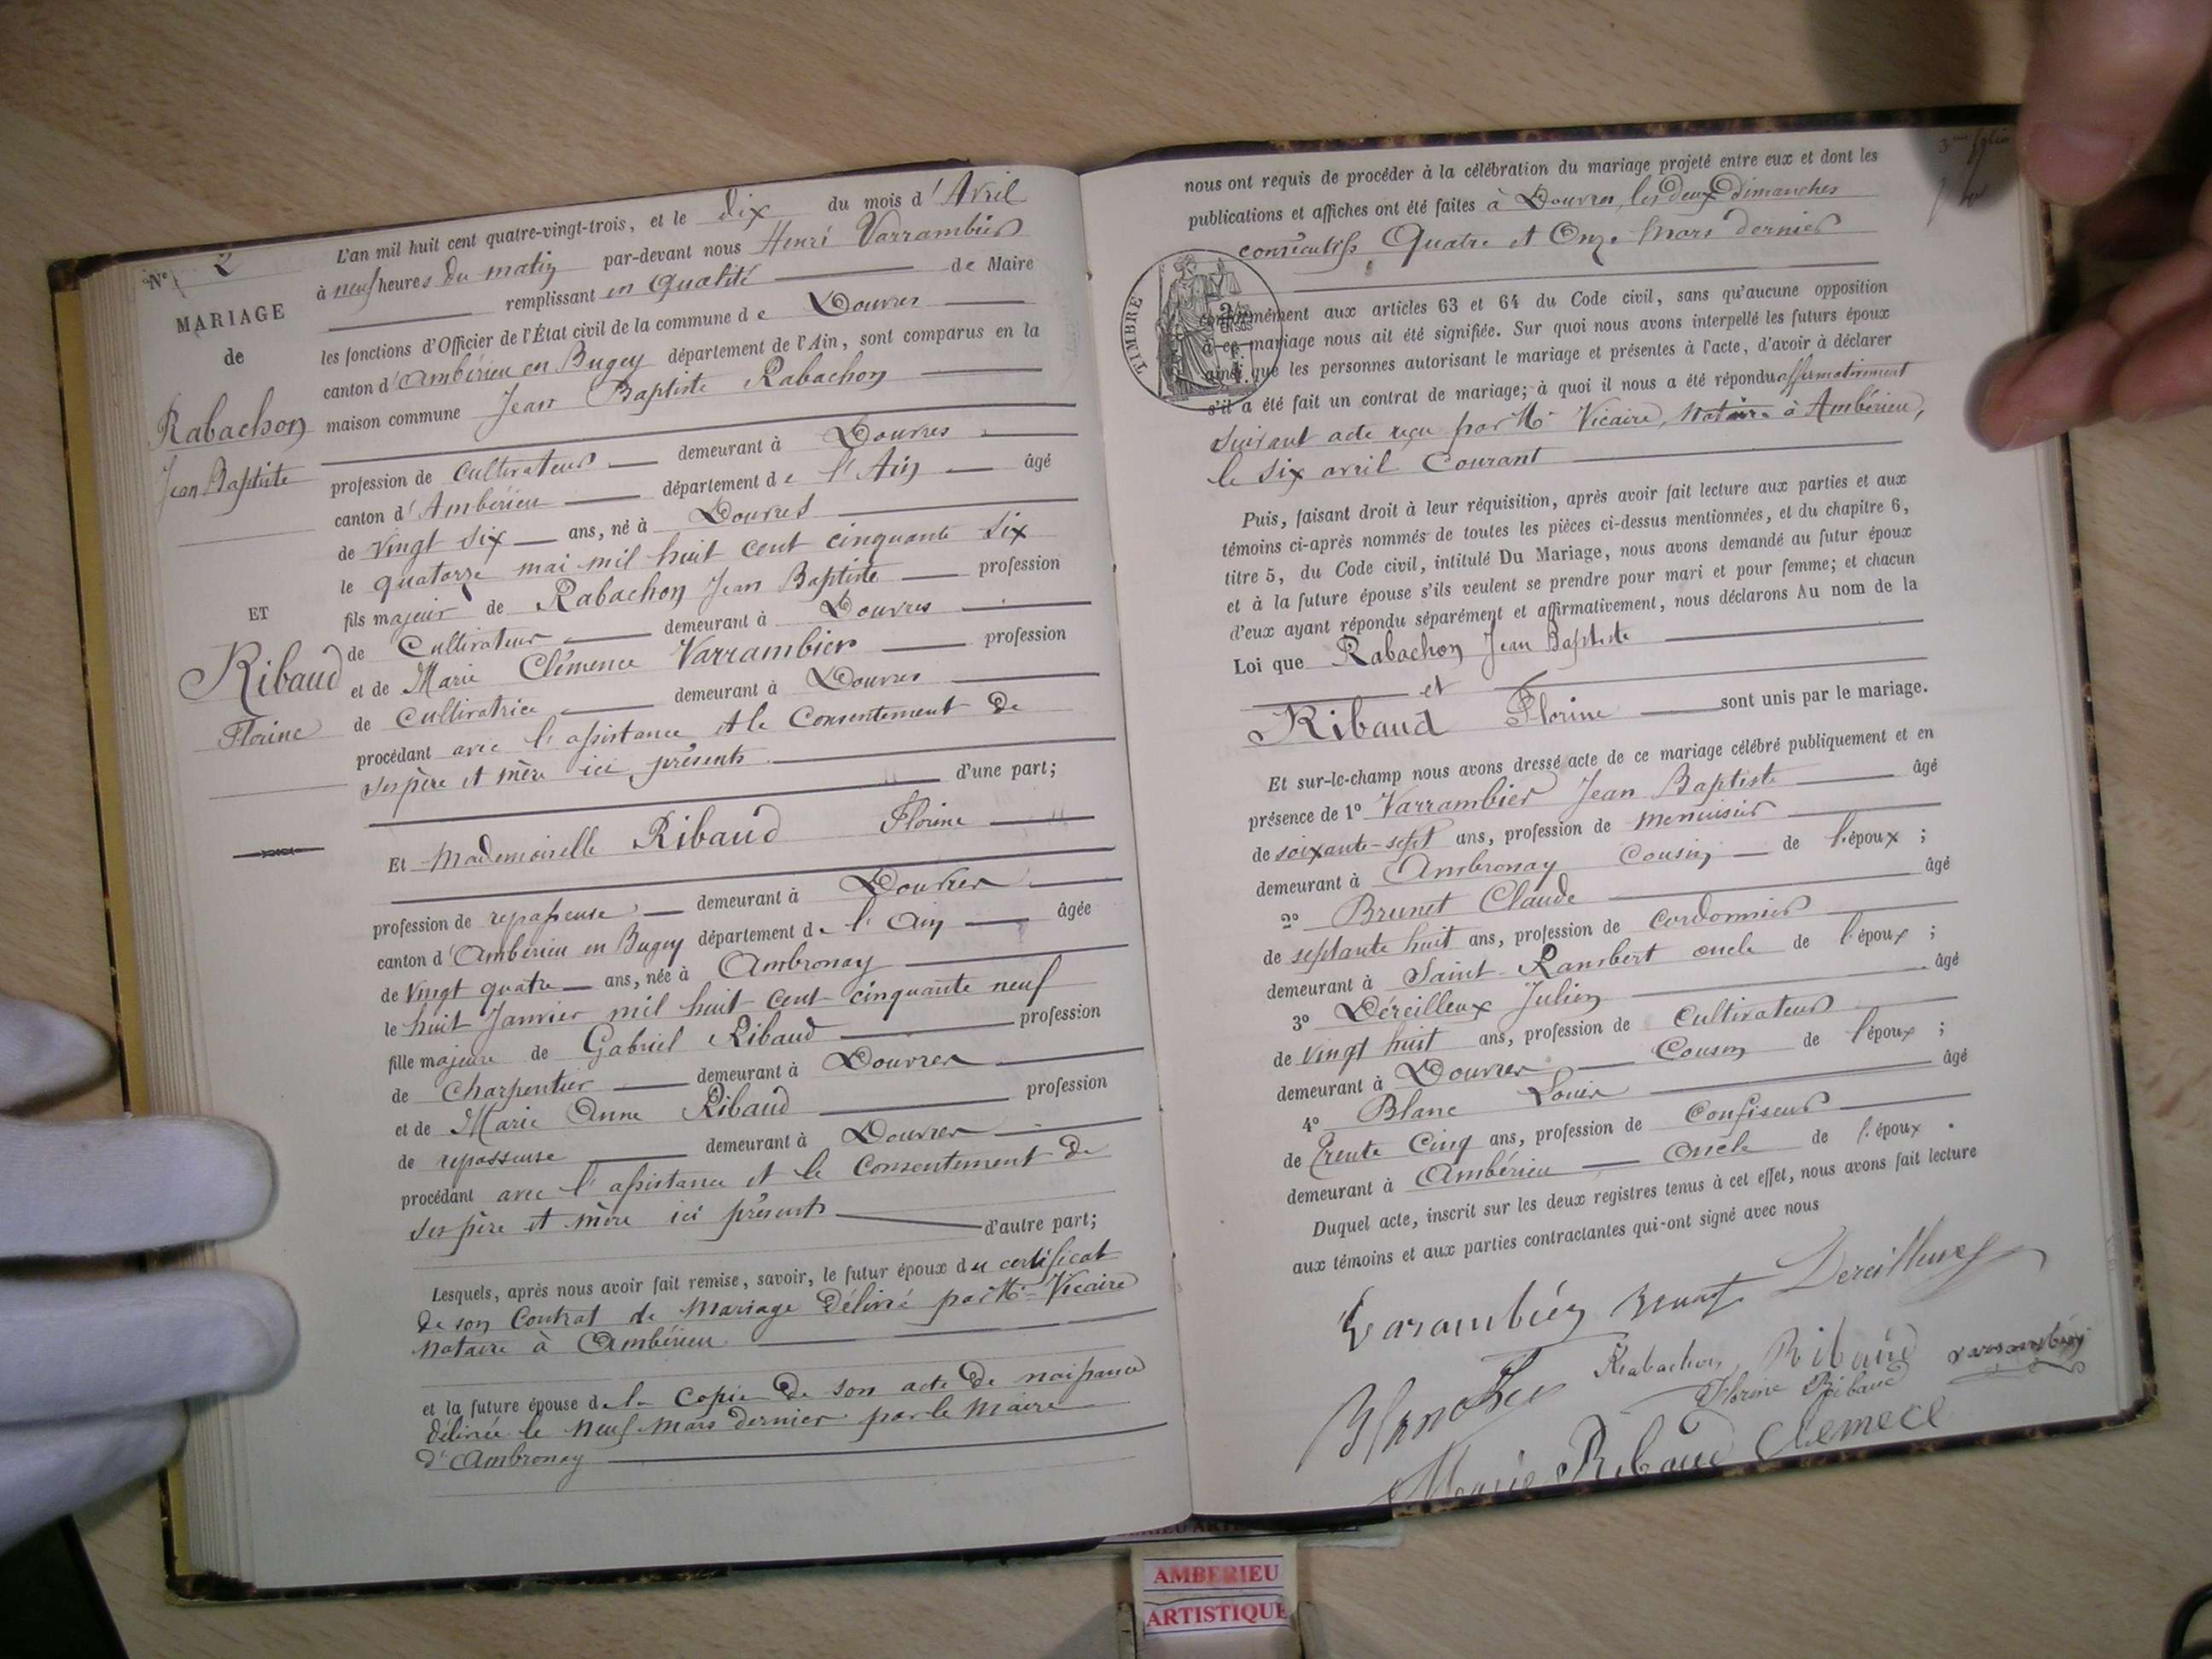 N° 2
MARIAGE
de
Rabachon
Jean Baptiste
ET
Ribaud
Florine
L'an mil huit cent quatre-vingt-trois, et le dix du mois d'Avril
à neuf heures du matin par-devant nous Henri Varrambier
remplissant en qualité de Maire
les fonctions d'Officier de l'État civil de la commune de Douvres
canton d'Ambérieu en Bugey département de l'Ain, sont comparus en la
maison commune Jean Baptiste Rabachon
profession de Cultivateur demeurant à Douvres
canton d'Ambérieu département de l'Ain âgé
de vingt six ans, né à Douvres
le quatorze mai mil huit cent cinquante six
fils majeur de Rabachon Jean Baptiste profession
de Cultivateur demeurant à Douvres
et de Marie Clémence Varrambier profession
de Cultivatrice demeurant à Douvres
procédant avec l'assistance et le Consentement de
ses père et mère ici présents
d'une part;
Et Mademoiselle Ribaud Florine
profession de repasseuse demeurant à Douvres
canton d'Ambérieu en Bugey département de l'Ain âgée
de Vingt quatre ans, née à Ambronay
le huit Janvier mil huit cent cinquante neuf
fille majeure de Gabriel Ribaud profession
de Charpentier demeurant à Douvres
et de Marie Anne Ribaud profession
de repasseuse demeurant à Douvres
procédant avec l'assistance et le Consentement de
ses père et mère ici présents d'autre part;
Lesquels, après nous avoir fait remise, savoir, le futur époux du certificat
de son Contrat de Mariage délivré par Me Vicaire
Notaire à Ambérieu
et la future épouse de la Copie de son acte de naissance
délivrée le neuf Mars dernier par le Maire
d'Ambronay
3me folio
nous ont requis de procéder à la célébration du mariage projeté entre eux et dont les
publications et affiches ont été faites à Douvres, les deux Dimanches
consécutifs Quatre et Onze Mars dernier
TIMBRE
conformément aux articles 63 et 64 du Code civil, sans qu'aucune opposition
à ce mariage nous ait été signifiée. Sur quoi nous avons interpellé les futurs époux
ainsi que les personnes autorisant le mariage et présentes à l'acte, d'avoir à déclarer
s'il a été fait un contrat de mariage; à quoi il nous a été répondu affirmativement
suivant acte reçu par Me Vicaire, Notaire à Ambérieu,
le six avril Courant
Puis, faisant droit à leur réquisition, après avoir fait lecture aux parties et aux
témoins ci-après nommés de toutes les pièces ci-dessus mentionnées, et du chapitre 6,
titre 5, du Code civil, intitulé Du Mariage, nous avons demandé au futur époux
et à la future épouse s'ils veulent se prendre pour mari et pour femme; et chacun
d'eux ayant répondu séparément et affirmativement, nous déclarons Au nom de la
Loi que Rabachon Jean Baptiste
et
Ribaud Florine sont unis par le mariage.
Et sur-le-champ nous avons dressé acte de ce mariage célébré publiquement et en
présence de 1° Varrambier Jean Baptiste âgé
de soixante-sept ans, profession de menuisier
demeurant à Ambronay Cousin de l'époux ;
2° Brunet Claude âgé
de septante huit ans, profession de Cordonnier
demeurant à Saint-Rambert oncle de l'époux ;
3° Déreilleux Julien âgé
de Vingt huit ans, profession de Cultivateur
demeurant à Douvres Cousin de l'époux ;
4° Blanc Louis âgé
de Trente Cinq ans, profession de Confiseur
demeurant à Ambérieu Oncle de l'époux .
Duquel acte, inscrit sur les deux registres tenus à cet effet, nous avons fait lecture
aux témoins et aux parties contractantes qui ont signé avec nous
Varambier Brunet Dereilleux
Rabachon Ribaud Varrambier
Florine Ribaud
Marie Ribaud Clemece
AMBERIEU
ARTISTIQUE